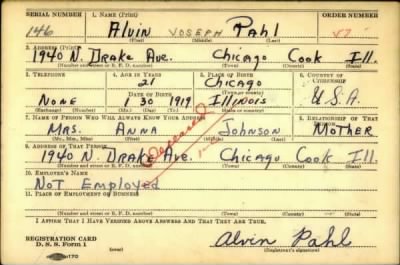 SERIAL NUMBER 1. NAME (Print) ORDER NUMBER
146 Alvin Joseph Pahl
(First) (Middle) (Last)
2. ADDRESS (Print)
1940 N. Drake Ave. Chicago Cook Ill.
(Number and street or R. F. D. number) (Town) (County) (State)
3. TELEPHONE 4. AGE IN YEARS 5. PLACE OF BIRTH 6. COUNTRY OF CITIZENSHIP
21 Chicago
DATE OF BIRTH (Town or county)
None 1 30 1919 Illinois U.S.A.
(Exchange) (Number) (Mo.) (Day) (Yr.) (State or country)
7. NAME OF PERSON WHO WILL ALWAYS KNOW YOUR ADDRESS 8. RELATIONSHIP OF THAT PERSON
Mrs. Anna Johnson Mother
(Mr., Mrs., Miss) (First) (Middle) (Last)
9. ADDRESS OF THAT PERSON
1940 N. Drake Ave. Chicago Cook Ill.
(Number and street or R. F. D. number) (Town) (County) (State)
Deceased
10. EMPLOYER'S NAME
Not Employed
11. PLACE OF EMPLOYMENT OR BUSINESS
(Number and street or R. F. D. number) (Town) (County) (State)
I AFFIRM THAT I HAVE VERIFIED ABOVE ANSWERS AND THAT THEY ARE TRUE.
REGISTRATION CARD
D. S. S. Form 1 Alvin Pahl
(Registrant's signature)